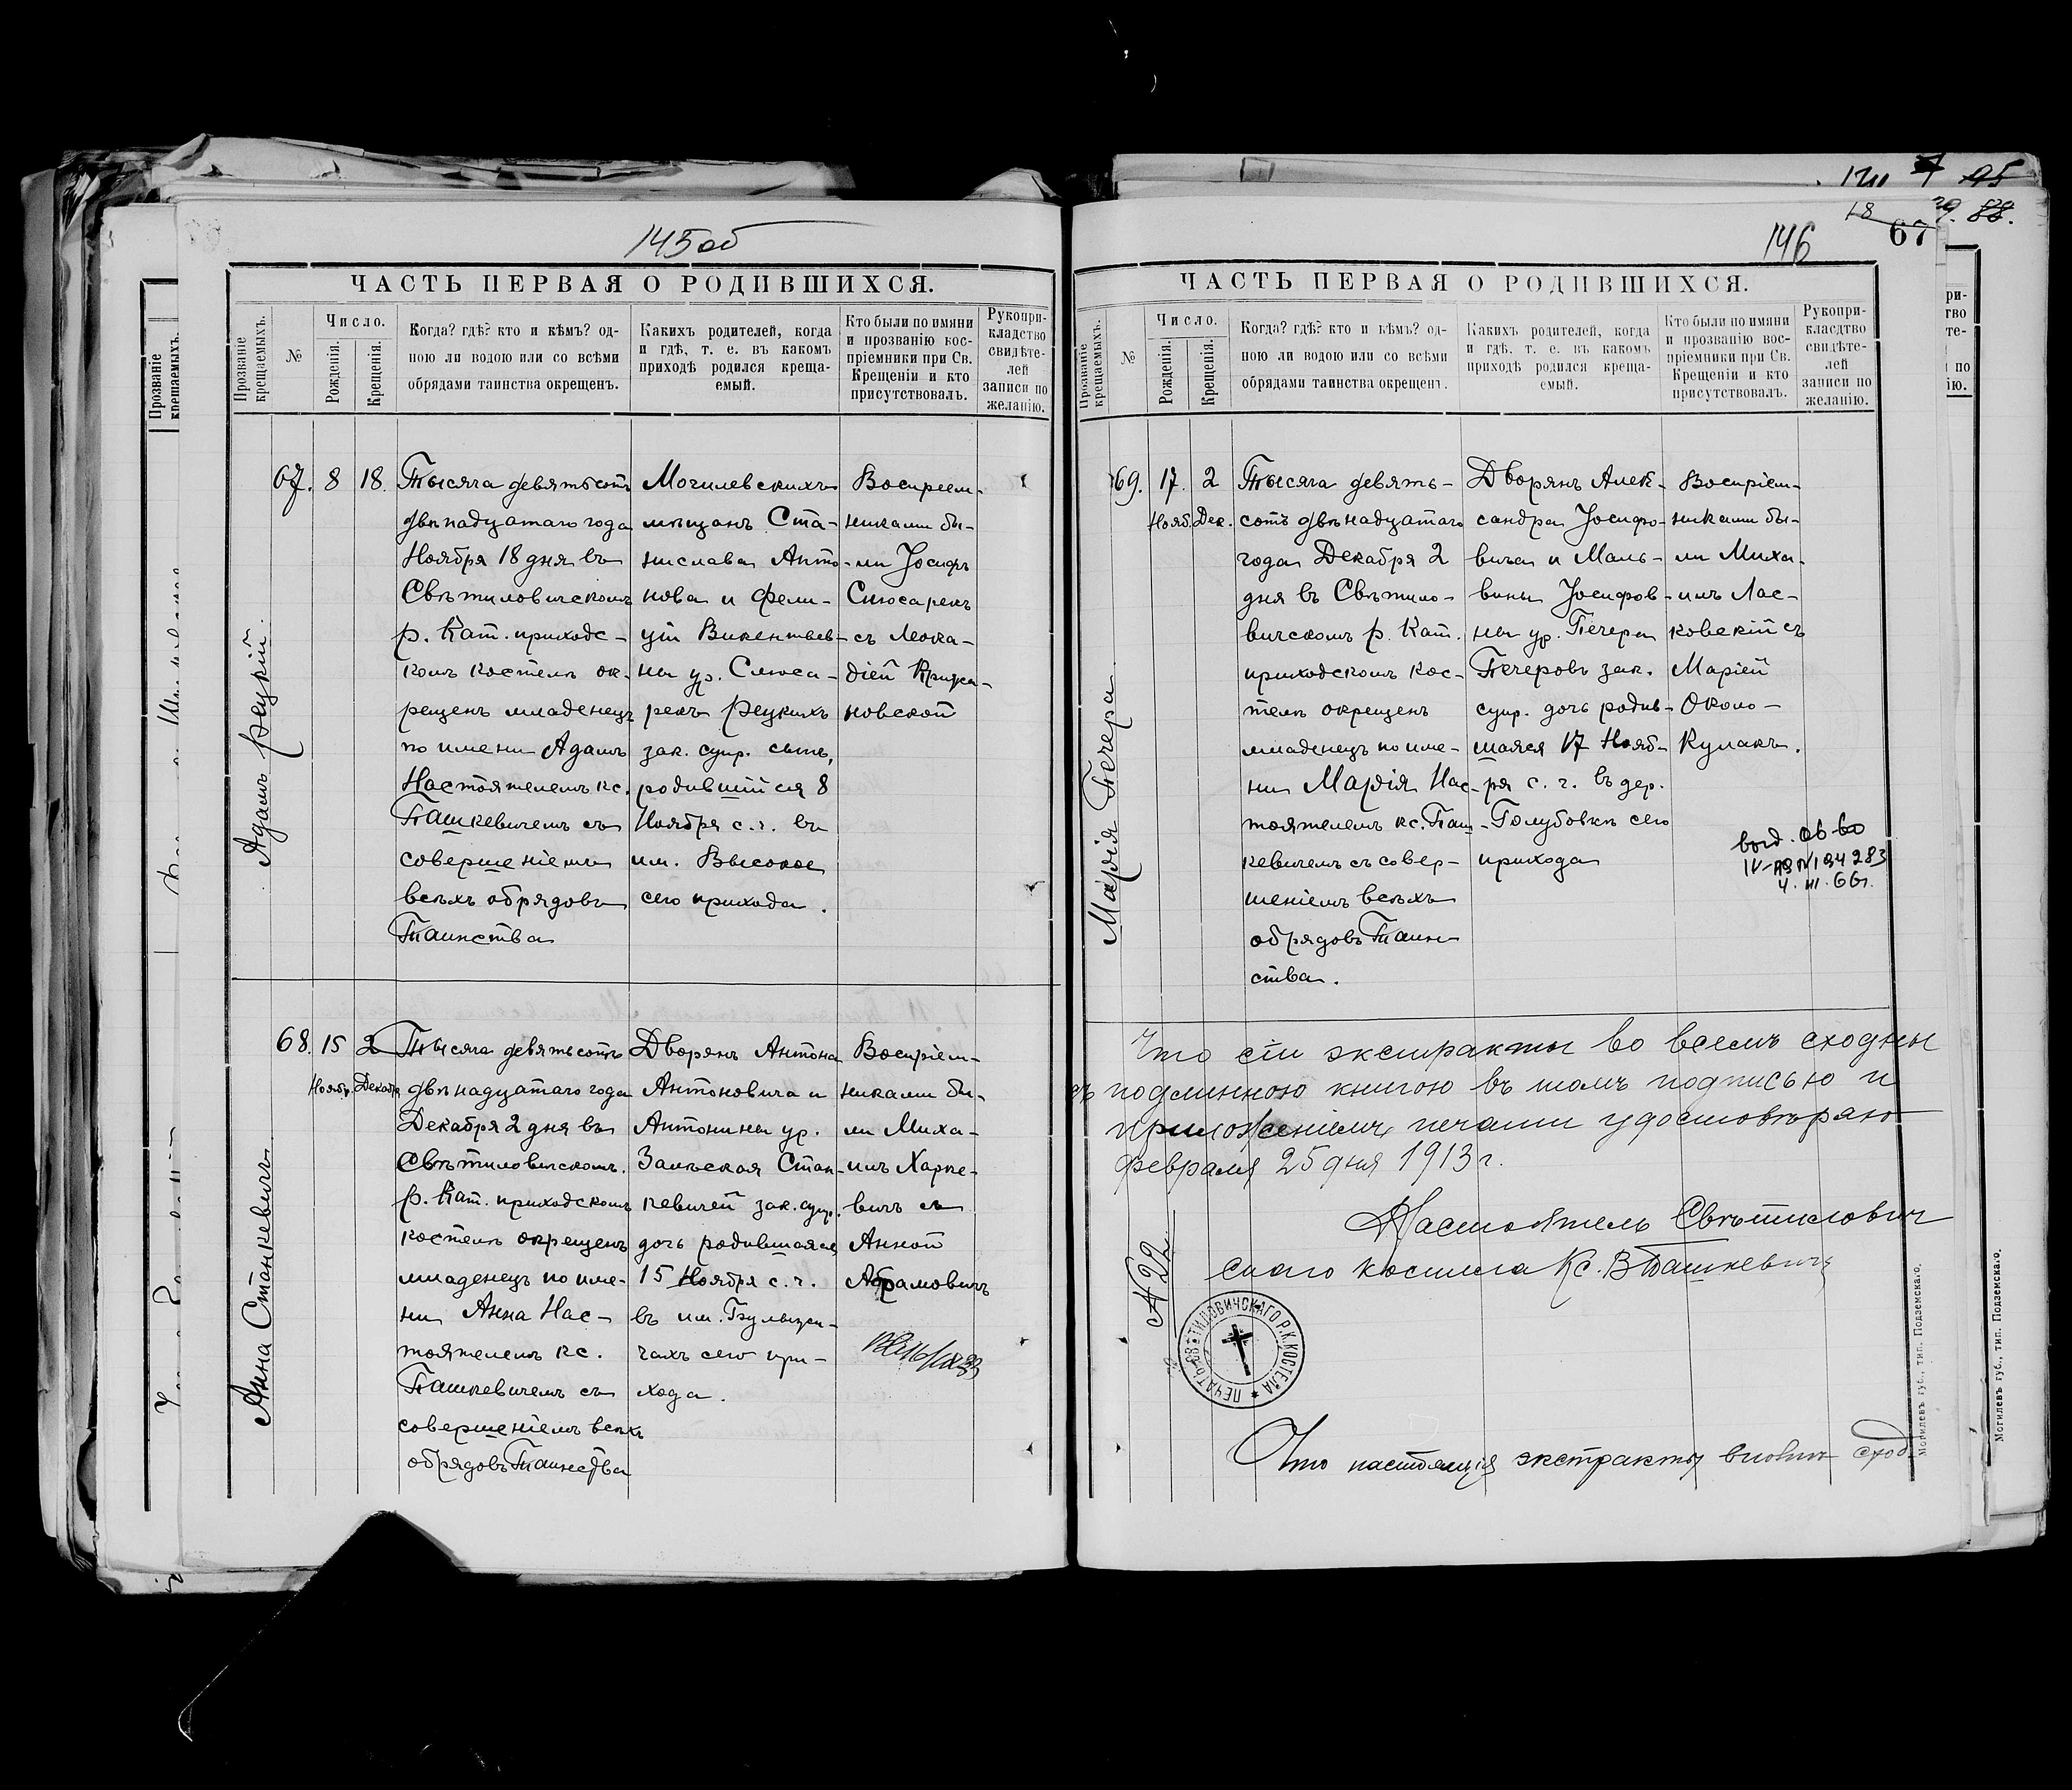 145об
ЧАСТЬ ПЕРВАЯ О РОДИВШИХСЯ.
Прозваніе крещаемыхъ.
№
Число.
Рожденія.
Крещенія.
Когда? гдѣ? кто и кѣмъ? од-
ною ли водою или со всѣми
обрядами таинства окрещенъ.
Какихъ родителей, когда
и гдѣ, т. е. въ какомъ
приходѣ родился креща-
емый.
Кто были по имяни
и прозванію вос-
пріемники при Св.
Крещеніи и кто
присутствовалъ.
Рукопри-
кладство
свидѣте-
лей
записи по
желанію.
Адамъ Рецкій.
67.
8
18.
Тысяча девятьсотъ
двѣнадцатаго года
Ноября 18 дня въ
Свѣтиловичскомъ
р. Кат. приходс-
комъ костелѣ ок-
рещенъ младенецъ
по имени Адамъ
Настоятелемъ кс.
Пашкевичемъ съ
совершеніемъ
всѣхъ обрядовъ
Таинства
Могилевскихъ
мѣщанъ Ста-
нислава Анто-
нова и Фели-
ціи Викентьев-
ны ур. Слюса-
рекъ Рецкихъ
зак. супр. сынъ,
родившійся 8
Ноября с. г. въ
им. Высокое
сего прихода.
Воспреем-
никами бы-
ли Іосифъ
Слюсарекъ
съ Леока-
діей Крижа-
новской
Анна Станкевичъ
68.
15
Ноябр.
2
Декабр.
Тысяча девятьсотъ
двѣнадцатаго года
Декабря 2 дня въ
Свѣтиловичскомъ.
р. Кат. приходскомъ
костелѣ окрещенъ
младенецъ по име-
ни Анна Нас-
тоятелемъ кс.
Пашкевичемъ съ
совершеніемъ всѣхъ
обрядовъ Таинства
Дворянъ Антона
Антоновича и
Антонины ур.
Залѣская Стан-
кевичей зак. супр.
дочь родившаяся
15 Ноября с. г.
въ им.
чахъ сего при-
хода.
Воспріем-
никами бы-
ли Миха-
илъ Харке-
вичъ съ
Анной
Абрамовичъ
146
67
18
ЧАСТЬ ПЕРВАЯ О РОДИВШИХСЯ.
Прозваніе крещаемыхъ.
№
Число.
Рожденія.
Крещенія.
Когда? гдѣ? кто и кѣмъ? од-
ною ли водою или со всѣми
обрядами таинства окрещенъ.
Какихъ родителей, когда
и гдѣ. т. е. въ какомъ
приходѣ родился креща-
емый.
Кто были по имяни
и прозванію вос-
пріемники при Св.
Крещеніи и кто
присутствовалъ.
Рукопри-
класдтво
свидѣте-
лей
записи по
желанію.
Марія Печера
69.
17.
Нояб.
2
Дек.
Тысяча девять-
сотъ двѣнадцатаго
года Декабря 2
дня въ Свѣтило-
вичскомъ р. Кат.
приходскомъ кос-
телѣ окрещенъ
младенецъ по име-
ни Марія Нас-
тоятелемъ кс. Паш-
кевичемъ съ совер-
шеніемъ всѣхъ
обрядовъ Таин-
ства.
Дворянъ Алек-
сандра Іосифо-
вича и Маль-
вины Іосифов-
ны ур. Печера
Печеровъ зак.
супр. дочь родив-
шаяся 17 Нояб-
ря с. г. въ дер.
Голубовкѣ сего
прихода
Воспріем-
никами бы-
ли Миха-
илъ Лас-
ковскій съ
Маріей
Около-
Кулакъ.
4. III. 66г.
Что сіи экстракты во всемъ сходны
съ подлинною книгою въ томъ подписью и
приложеніемъ печати удостовѣряю
февраля 25 дня 1913 г.
Настоятель Свѣтилович
скаго костела Кс. В Пашкевичъ
№ 22
ПЕЧАТЬ СВѢТИЛОВИЧСКАГО Р.К. КОСТЕЛА
Что настоящія экстракты вполнѣ сход
Могилевъ губ., тип. Подземскаго.
Могилевъ губ., тип. Подземскаго.